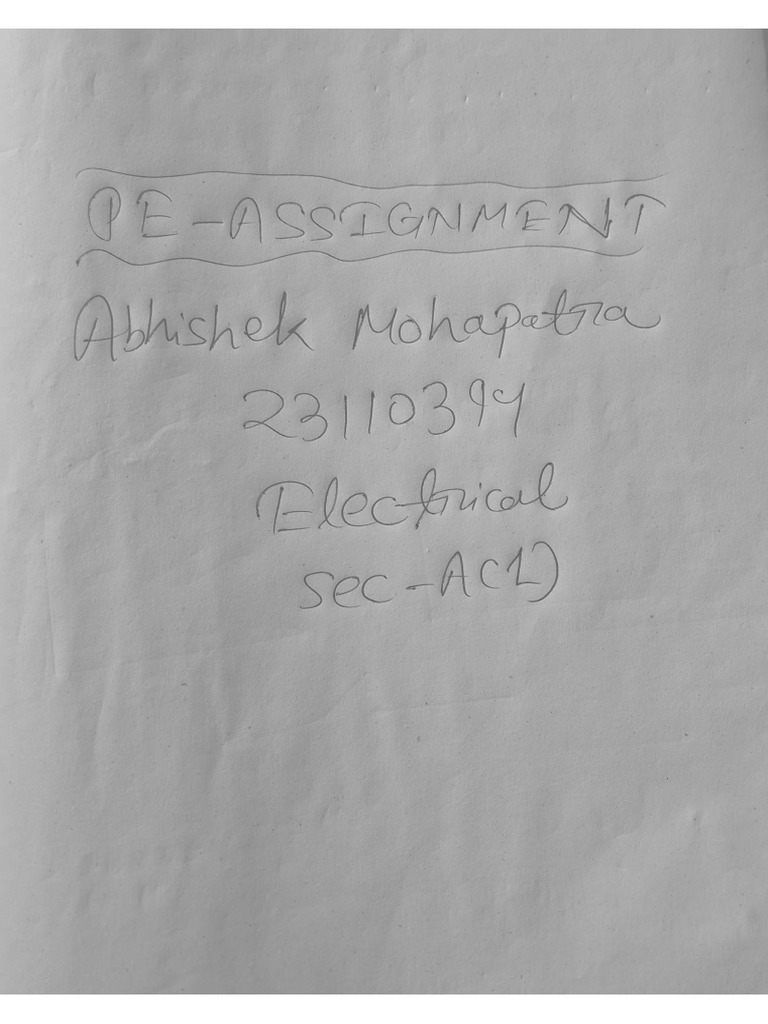 PE-ASSIGNMENT
Abhishek Mohapatra
23110394
Electrical
sec-A(1)